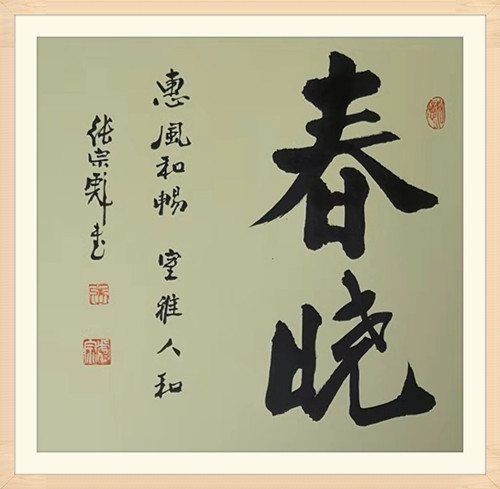 春晓
惠風和暢 室雅人和
张宗彪书